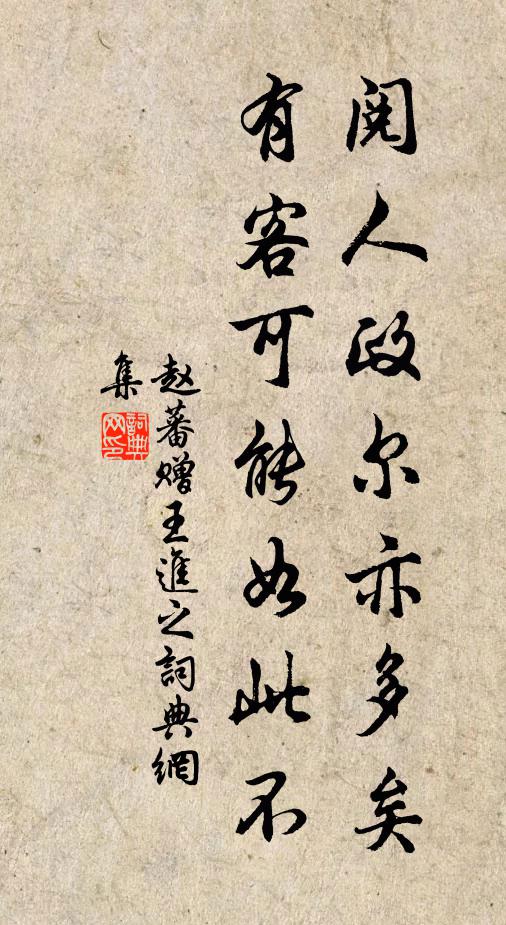 阅人政尔亦多矣
有客可能如此不
赵蕃赠王進之詞典網
集
詞典
网印